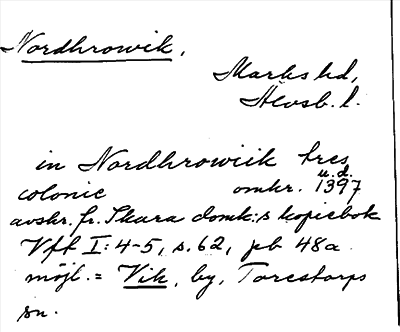 Nordhrowik.
Marks hd,
Älvsb. l.
in Nordhrowiik tres
u.d.
colonie omkr. 1397
avskr. fr. Skara domk:s kopiebok
Vft I: 4-5, s. 62, pb 48a
möjl. = Vik, by, Torestorps
sn.